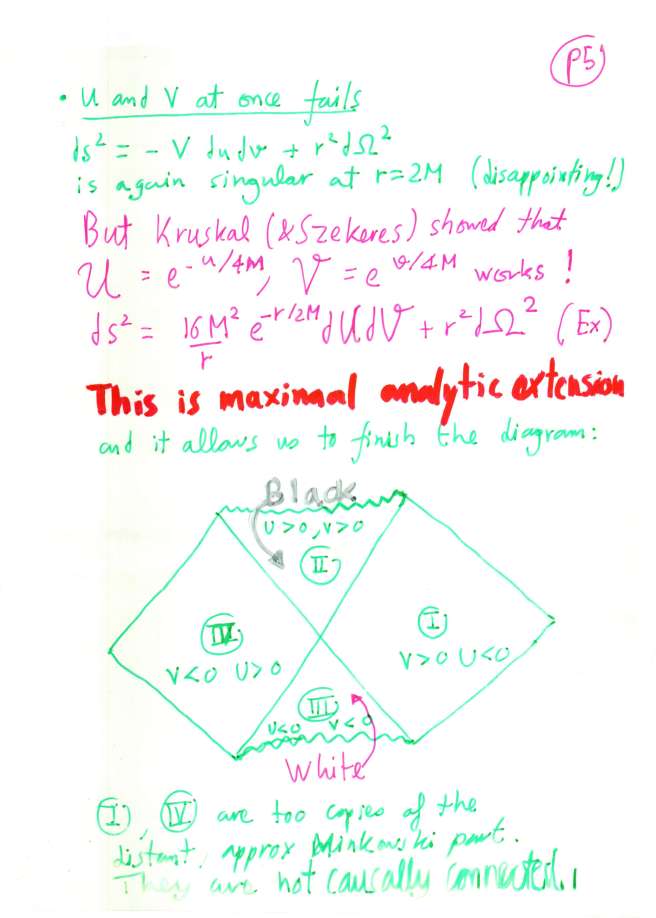 P5
• U and V at once fails
ds² = - V du dv + r² dΩ²
is again singular at r=2M (disappointing!)
But Kruskal (& Szekeres) showed that
U = e^{-u/4M}, V = e^{v/4M} works!
ds² = 16M²/r e^{-r/2M} dU dV + r² dΩ² (Ex)
This is maximal analytic extension
and it allows us to finish the diagram:
Black
U>0, V>0
II
IV
I
V<0 U>0
V>0 U<0
III
U<0 V<0
White
I, IV are too copies of the
distant, approx Minkowski part.
They are not causally connected.